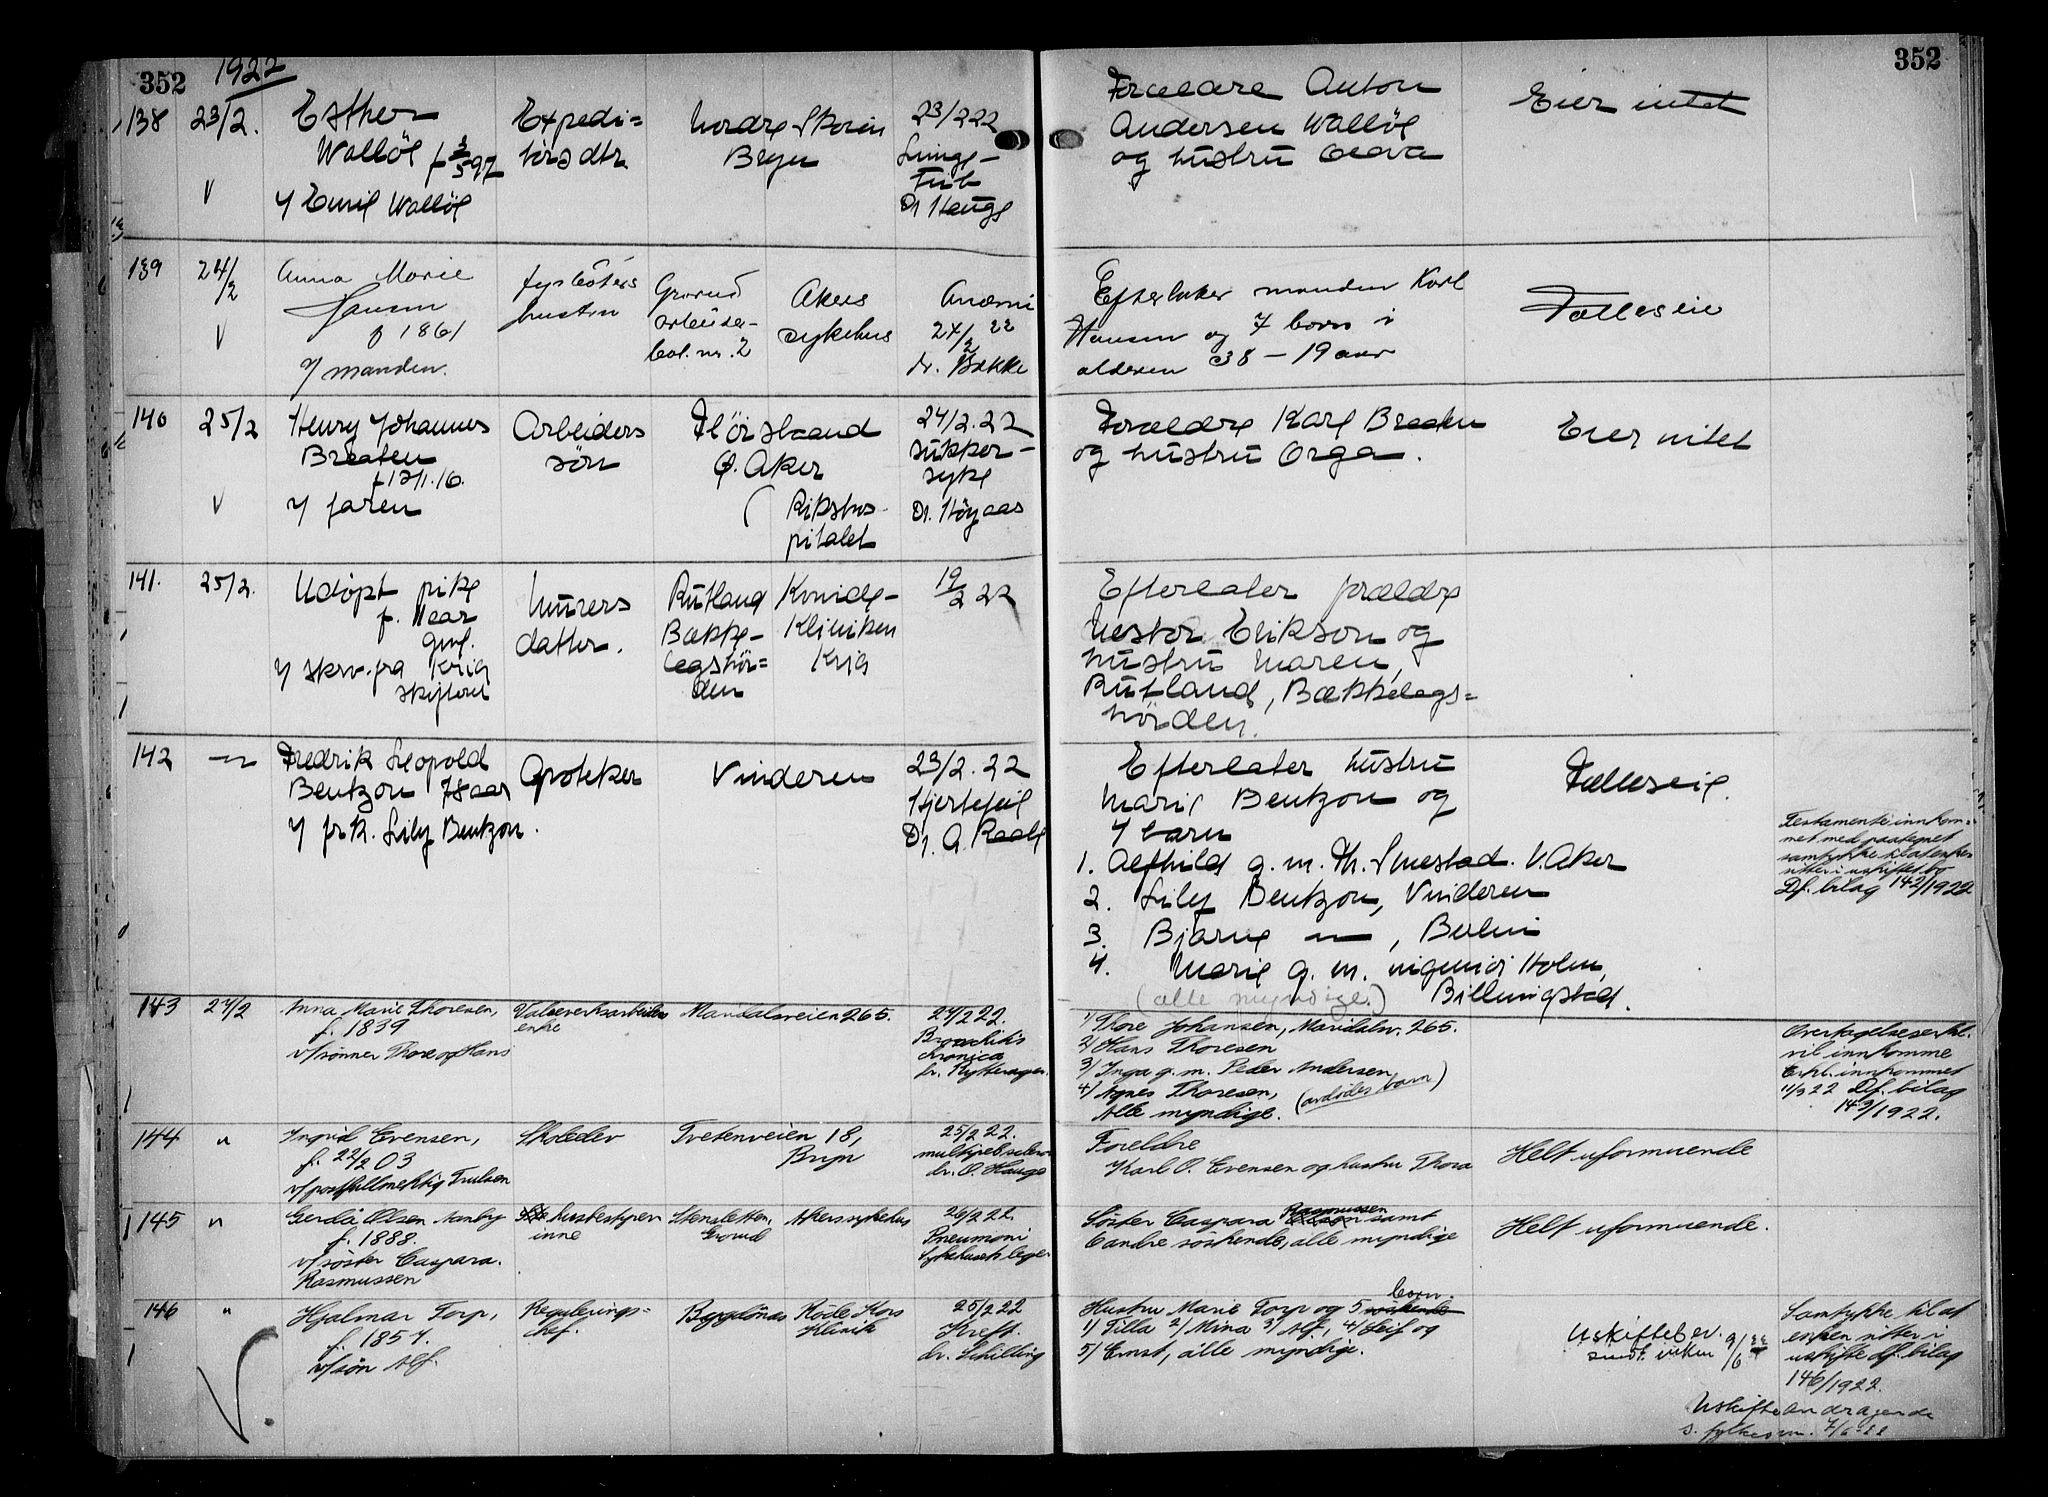 352
1922
352
138
23/2.
Esther
Walløe f 3/5 97
v/ Emil Walløe
Expedi=
førs dtr.
Nordre Skøien
Bryn
23/2 22
Lunge-
tub
Dr Hauge
Forældre Anton
Andersen Walløe
og hustru Olava
Eier intet
139
24/2
Anna Marie
Hansen
f 1861
v/ manden.
fyrbøters
hustru
Grorud
arbeider-
bol. nr. 2
Akers
sykehus
Anæmi
24/2 22
dr. Bakke
Efterlater manden Karl
Hansen og 7 barn i
alderen 38 - 19 aar
Fælleseie
140
25/2
Henry Johannes
Breaten
f 13/1.16.
v/ faren
Arbeiders
søn
Fløisbaand
Ø. Aker
( Rikshos-
pitalet
24/2.22
sukker-
syke
Dr. Høyaas
Forældre Karl Braaten
og hustru Orga.
Eier intet
141.
25/2.
Udøpt pike
v/ skr. fra Kria
skifteret
Murers
datter.
Rutland
Bække-
legshøi=
den
Kvinde-
Kliniken
Kria
19/2 22
Efterlater forældre
Nestor Erikson og
hustru Maren,
Rutland, Bækkelags=
høiden.
142
-"-
Fredrik Leopold
Bentzon 78 aar
v/ frk. Lily Bentzon.
Apoteker
Vinderen
23/2.22
Hjertefeil
Dr. A. Raabe
Efterlater hustru
Marie Bentzon og
4 barn
1. Alfhild g. m. Th. Smestad. V. Aker
2. Lily Bentzon, Vinderen
3. Bjarne -"-, Berlin
4. Marie g. m. ingeniør Holm,
(alle myndige.) Billingstad.
Fælleseie.
Testamente innkom-
met med paategnet
samtykke til at enken
sitter i uskiftet bo
Df. bilag 142/1922
143
27/2
Anna Marie Thoresen,
f. 1839
v/ sønner Thore og Hans
Valseverksarbeiders
enke
Maridalsveien 265.
24/2 22.
Bronchitis
chronica
1) Thore Johansen, Maridalsv. 265.
2) Hans Thoresen
3) Inga g. m. Peder Andersen
4) Agnes Thoresen, (avdødes barn)
Alle myndige.
Overtagelseserkl.
vil innkomme
Erkl. innkommet
11/3 22 Df. bilag
143/1922.
144
"
Ingrid Evensen,
f. 22/2 03
v/ postfuldmektig Trulsen
Skoleelev
Tvetenveien 18,
Bryn
25/2 22.
multipel sclerose
dr. O. Hauge
Foreldre
Karl O. Evensen og hustru Thora
Helt uformuende
145
"
Gerda Olsen Aanby
f. 1888.
v/ søster Caspara.
Rasmussen
huskestyrer
inne
Stensletten,
Grorud
Akers sykehus
26/2 22.
Pneumoni
Sykehusets leger
Søster Caspara Rasmussen samt
6 andre søskende, alle myndige
Helt uformuende.
146
"
Hjalmar Torp,
f. 1857.
v/ søn Alf.
Regulerings-
chef.
Bygdønæs
Røde Kors
Klinik
25/2 22
Kreft.
dr. Schilling
Hustru Marie Torp og 5 barn. søskende
1) Tilla 2) Mina 3) Alf, 4) Leif og
5) Ernst, alle myndige.
Uskiftebev.
sendt enken 9/6 22
Samtykke til at
enken sitter i
uskifte Df. bilag
146/1922.
Uskifteandragende
s. fylkesm. 7/6 22